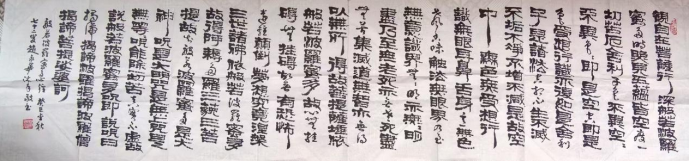 觀自在菩薩行深般若波羅
蜜多時照見五蘊皆空度一
切苦厄舍利子色不異空空
不異色色即是空空即是
色受想行識亦復如是舍利
子是諸法空相不生不滅
不垢不淨不增不減是故空
中無色無受想行
識無眼耳鼻舌身意無色
聲香味觸法無眼界乃至
無意識界無無明亦無無明
盡乃至無老死亦無老死盡
無苦集滅道無智亦無得
以無所得故菩提薩埵依
般若波羅蜜多故心無罣
礙無罣礙故無有恐怖
遠離顛倒夢想究竟涅槃
三世諸佛依般若波羅蜜多
故得阿耨多羅三藐三菩
提故知般若波羅蜜多是大
神咒是大明咒是無上咒是
無等等咒能除一切苦真實不虛故
說般若波羅蜜多咒即說咒曰
揭諦揭諦波羅揭諦波羅僧
揭諦菩提薩婆訶
般若波羅蜜多心經
七十二叟